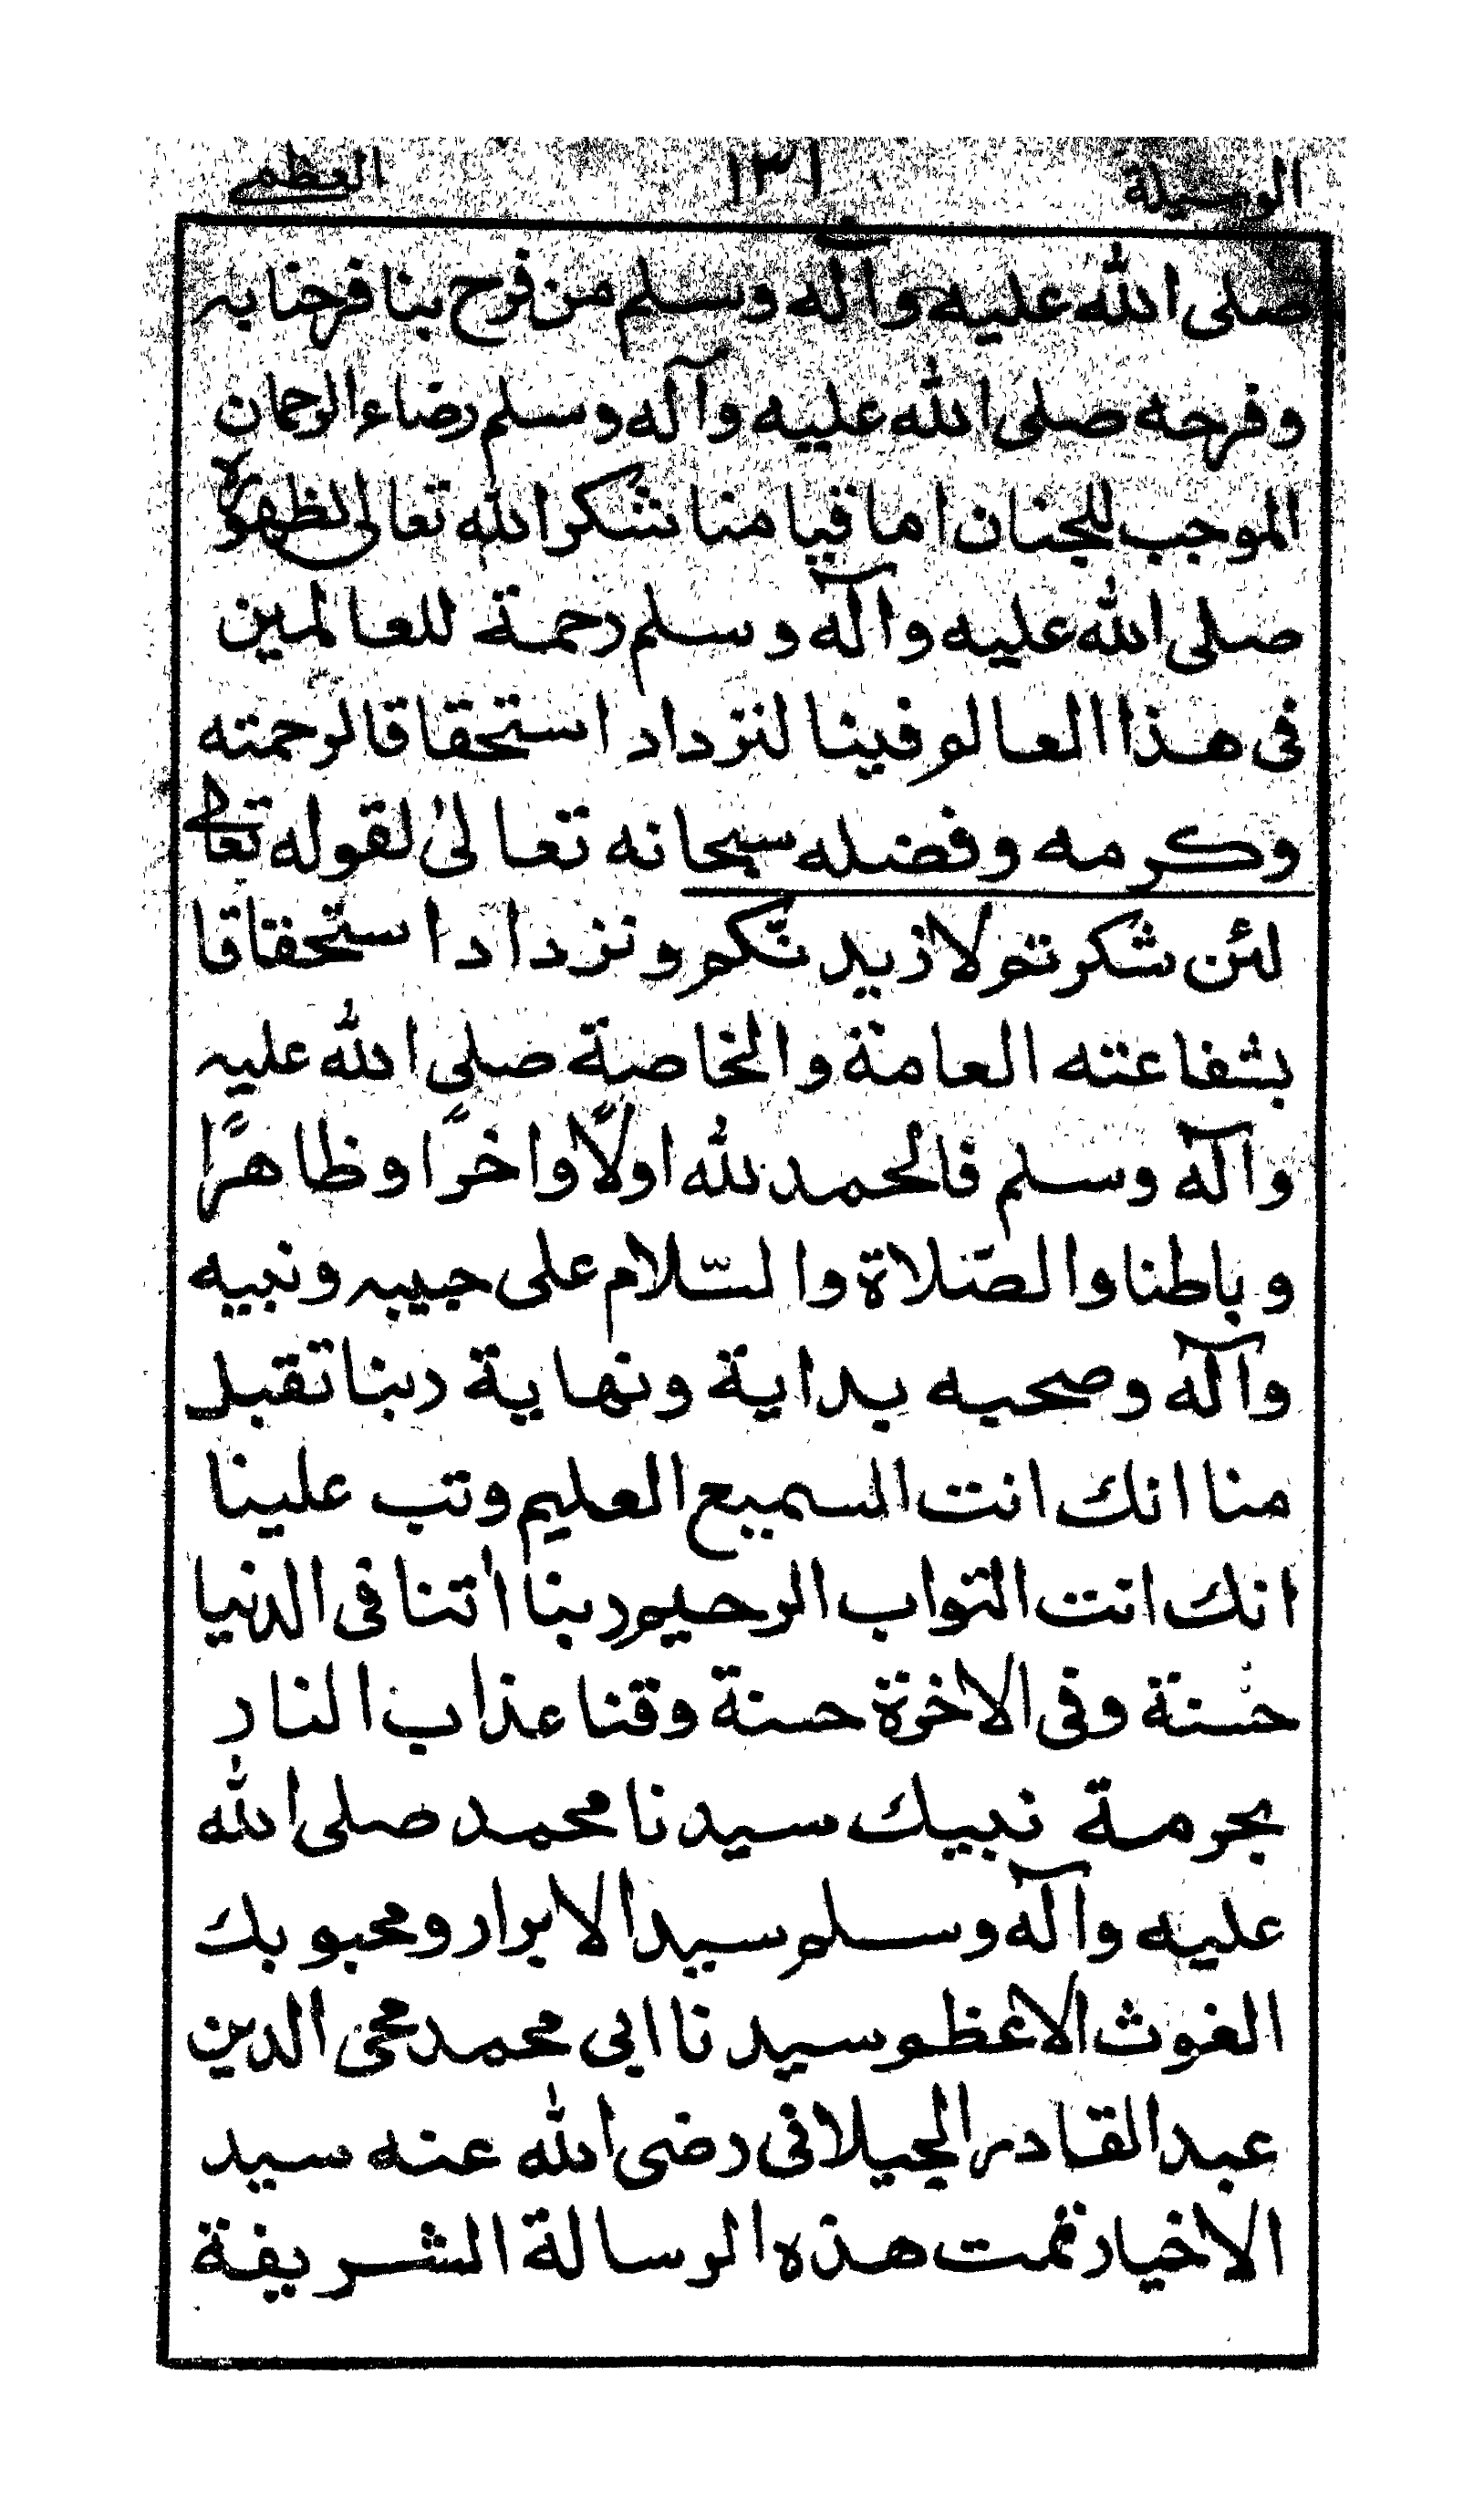 الوسيلة ١٣١ العظمى
صلى الله عليه وآله وسلم من فرح بنا فرحنا به
وفرحه صلى الله عليه وآله وسلم رضاء الرحمان
الموجب للجنان اما قيا منا شكر الله تعالى لظهوره
صلى الله عليه وآله وسلم رحمة للعالمين
فى هذا العالم فينا لنزداد استحقاقا لرحمته
وكرمه وفضله سبحانه تعالىٰ لقوله تعالى
لئن شكرتم لازيدنّكم ونزداد استحقاقا
بشفاعته العامة والخاصة صلى الله عليه
وآله وسلم فالحمد لله اولًا واخرًا وظاهرًا
وباطنا والصّلاة والسّلام على حبيبه ونبيه
وآله وصحبه بداية ونهاية ربنا تقبل
منا انك انت السميع العليم وتب علينا
انك انت التواب الرحيم ربنا اٰتنا فى الدنيا
حسنة وفى الاخرة حسنة وقنا عذاب النار
بحرمة نبيك سيدنا محمد صلى الله
عليه وآله وسلم سيد الابرار ومحبوبك
الغوث الاعظم سيدنا ابى محمد محى الدين
عبد القادر الجيلانى رضى الله عنه سيد
الاخيار تمت هذه الرسالة الشريفة